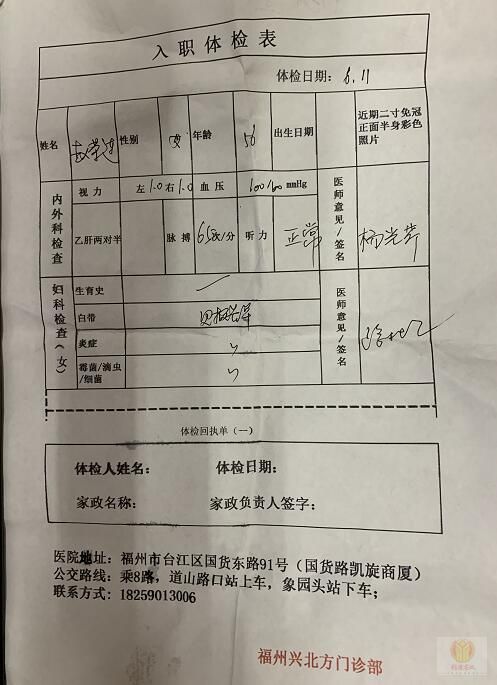 入职体检表
体检日期：6.11
姓名 性别 女 年龄 56 出生日期
近期二寸免冠正面半身彩色照片
内外科检查
视力 左1.0右1.0 血压 100/60 mmHg
乙肝两对半 脉搏 65次/分 听力 正常
医师意见/签名 杨光芹
妇科检查（女）
生育史
白带
炎症
霉菌/滴虫/细菌
医师意见/签名
体检回执单（一）
体检人姓名： 体检日期：
家政名称： 家政负责人签字：
医院地址：福州市台江区国货东路91号（国货路凯旋商厦）
公交路线：乘8路，道山路口站上车，象园头站下车；
联系方式：18259013006
福州兴北方门诊部